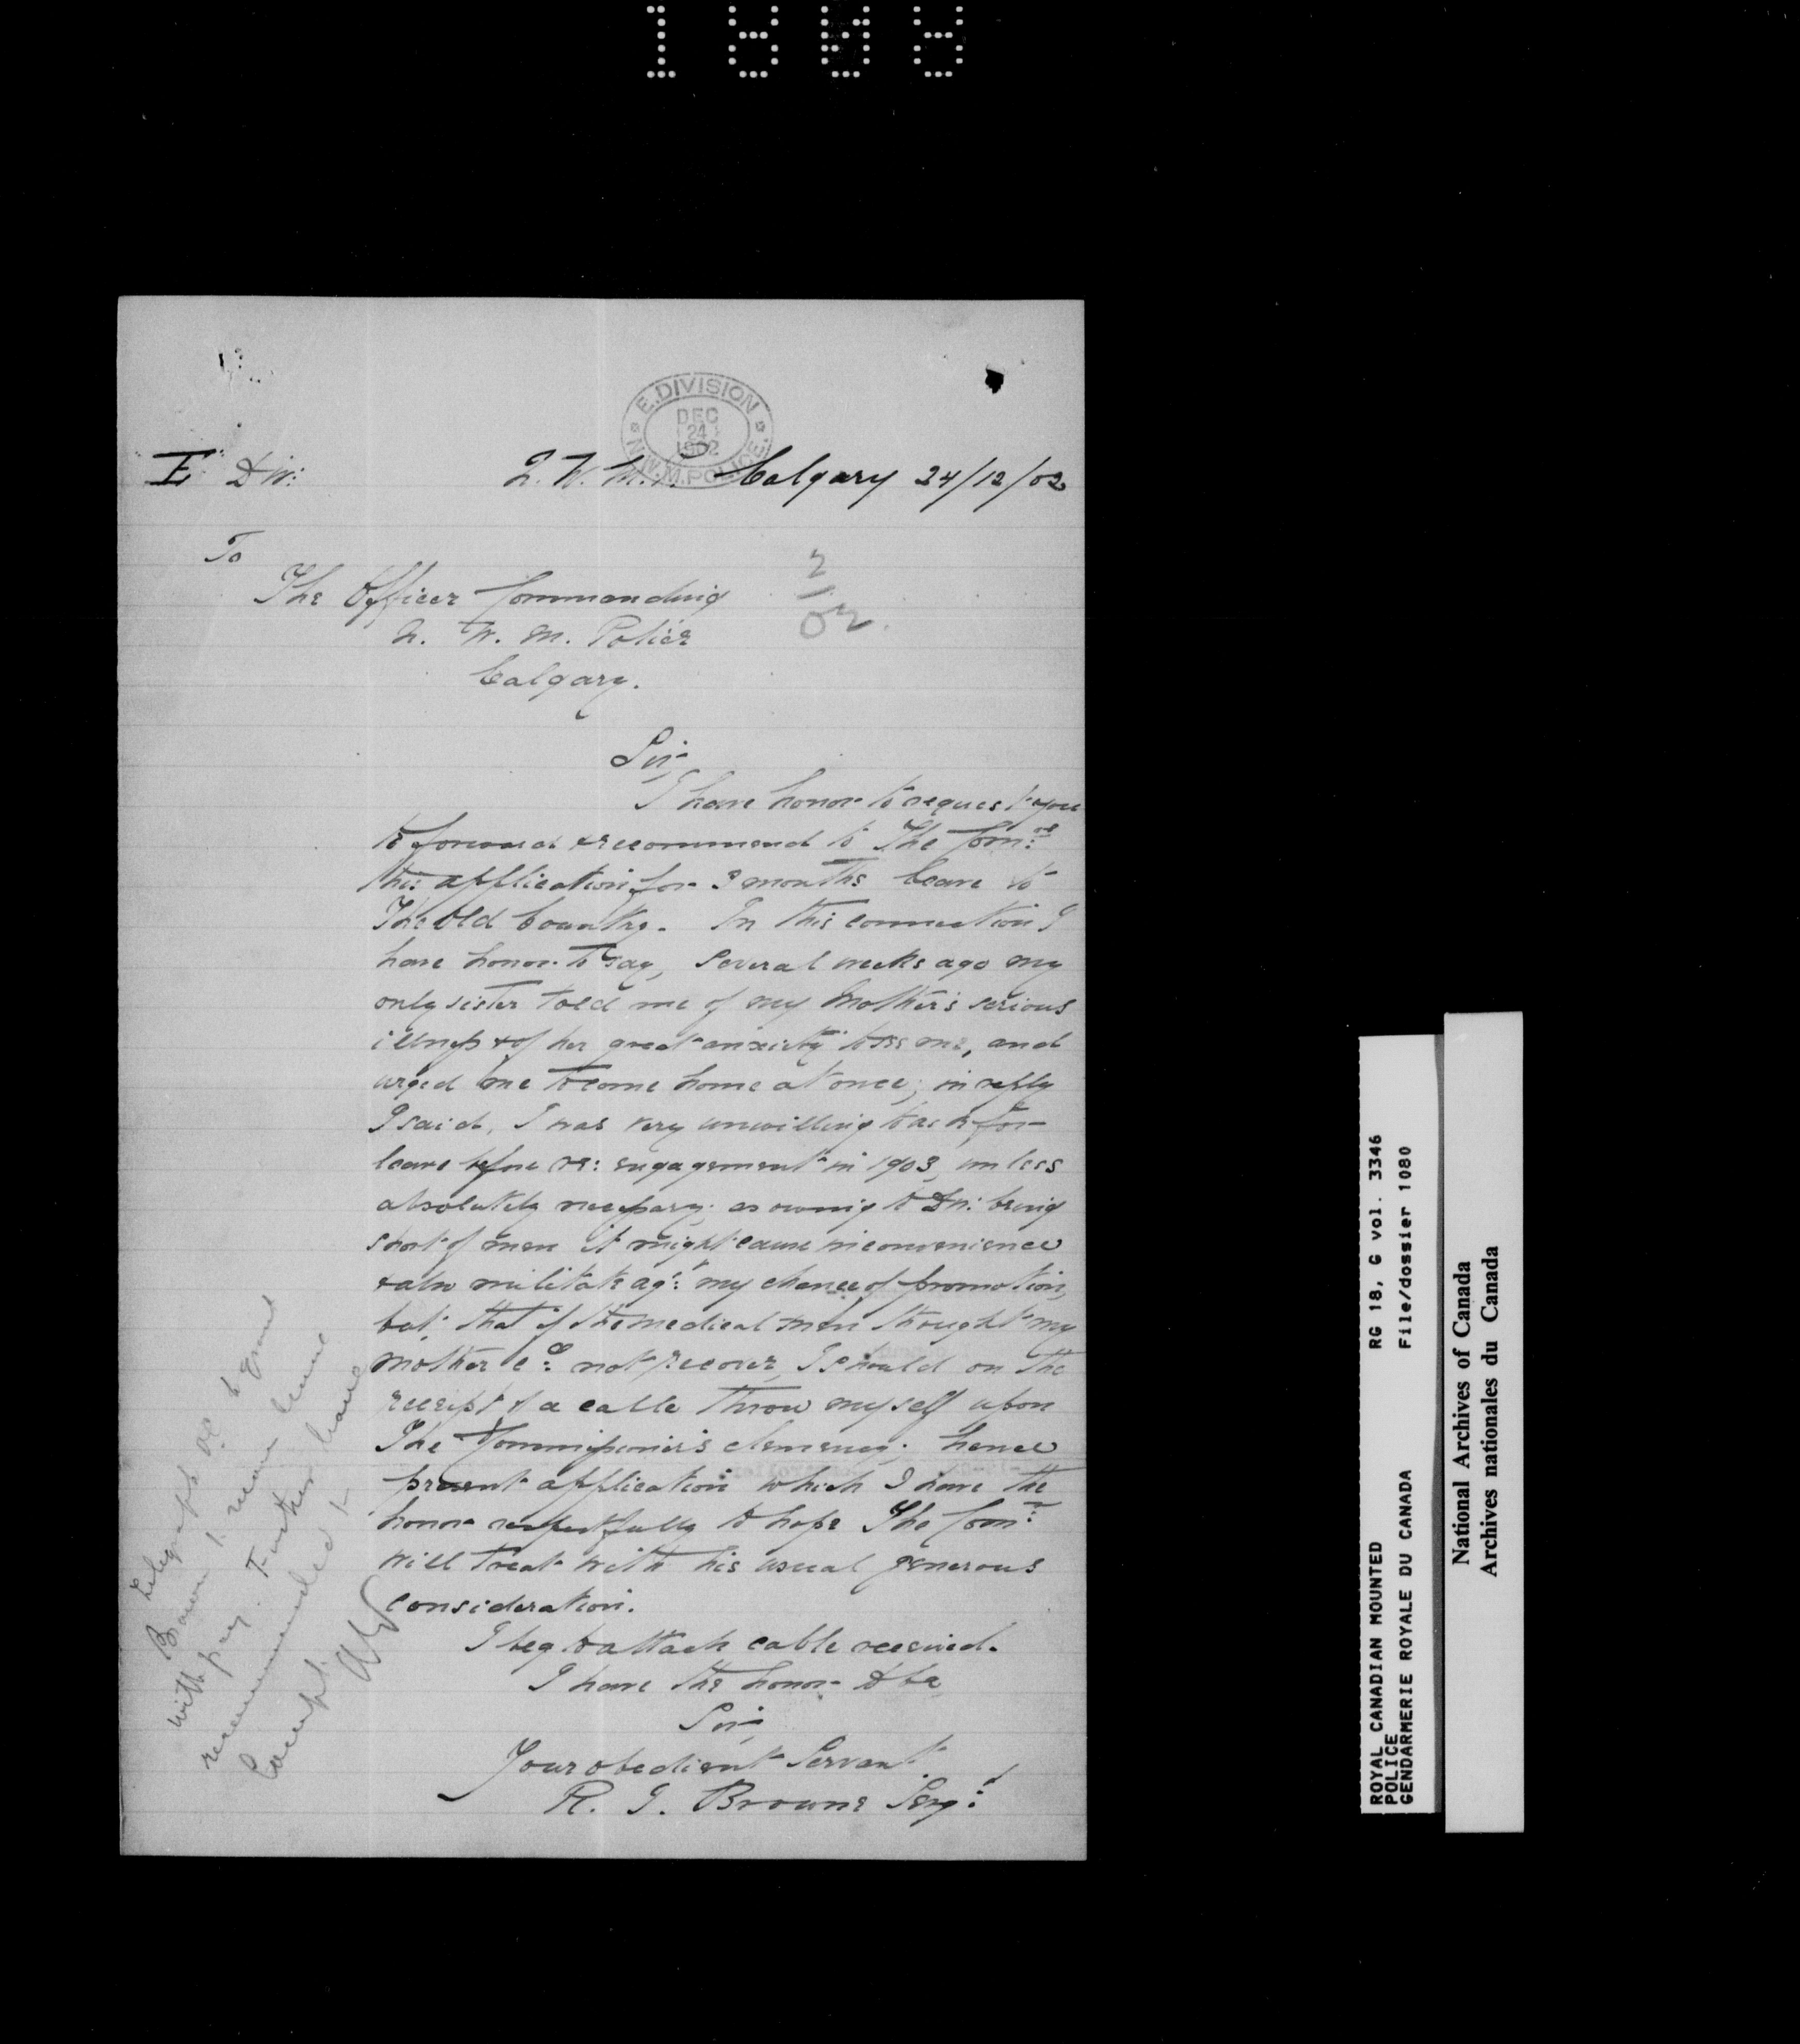 1808
E. DIVISION
DEC
24
1902
N.W.M. POLICE
E Div:
N. W. M. P. Calgary 24/12/02
To
The Officer Commanding
N. W. M. Police
Calgary.
2
02.
Sir,
I have honor to request you
to forward & recommend to The Comr:
this application for 3 months leave to
The Old Country. In this connection I
have honor to say, several weeks ago my
only sister told me of my Mother's serious
illness & of her great anxiety to see me, and
urged me to come home at once; in reply
I said, I was very unwilling to ask for
leave before re: engagement in 1903, unless
absolutely necessary; as owing to Dn: being
short of men it might cause inconvenience
& also militate agt: my chance of promotion,
but: that if the medical men thought my
mother cd: not recover, I should on the
receipt of a cable throw myself upon
The Commissioner's clemency; hence
present application which I have the
honor respectfully to hope The Comr:
will treat with his usual generous
consideration.
I beg to attach cable received.
I have the honor to be
Sir,
Your obedient Servant.
R. G. Browne Sergt:
Telegraph OC to grant
Brown 1. mon leave
with pay. Further leave
recommended to
Compt.
ROYAL CANADIAN MOUNTED
POLICE
GENDARMERIE ROYALE DU CANADA
RG 18, G vol. 3346
File/dossier 1080
National Archives of Canada
Archives nationales du Canada